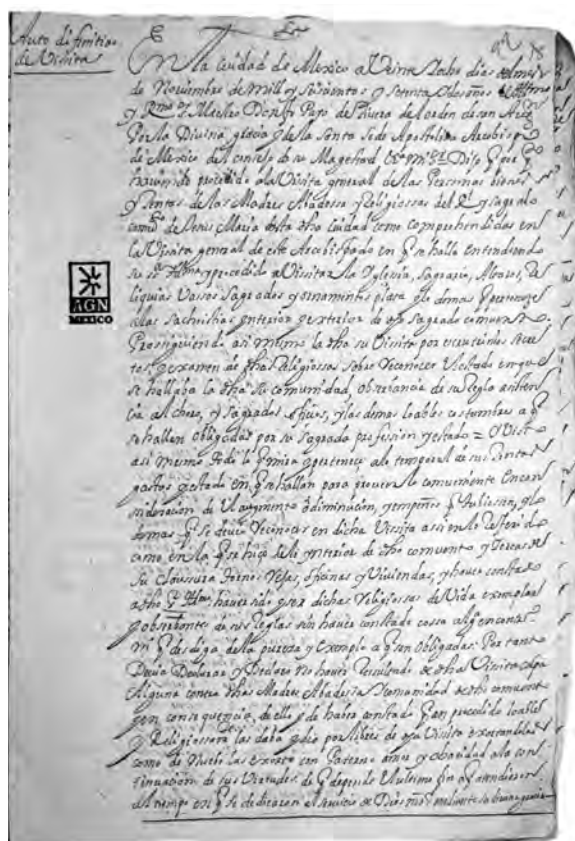 Auto difinitivo
de Visita
98
En la Ciudad de Mexico a Veinte y ocho dias del mes
de Noviembre de mill y seiscientos y setenta y dos años el Illmo
y Rmo Sr Maestro Don fr Payo de Rivera del orden de san Augn
Por la Divina gracia y de la Santa Sede Apostolica Arcobispo
de Mexico del consejo de su Magestad Dijo q por qto
haviendo procedido a la Visita general de las Personas bienes
y Rentas de las Madres Abadessa y Religiossas del Rl y sagrado
comto de Jesus Maria desta dha Ciudad como comprehendidas en
la Visita general de este Arcobispado en q se halla entendiendo
su sa Illma y procedido a Visitar la Yglesia, Sagrario, Altares, Re
liquias Vassos Sagrados y ornamentos plata y lo demas q pertenece
a las Sachristias ynterior y exterior de dho Sagrado convento
AGN
MEXICO
Prosiguiendo asi mismo la dha su Visita por escrutinio secre
to, y examen de dhas Religiossas sobre Reconocer el estado en que
se hallaba la dha su comunidad, observancia de su Regla asisten
cia al choro, y sagrados oficios, y las demas loables costumbres a q
se hallen obligadas por su sagrada profession y estado = y Visto
asi mismo todo lo q mira y pertenece a lo temporal de sus Rentas
gastos y estado en q se hallan para proveer lo comveniente en con
sideracion de el augmento o diminucion, y empeños q tubiesen, y lo
demas q se deve Reconocer en dicha Visita assi en lo Referido
como en la q se hiço de lo ynterior de dho comvento y Cercas de
su Claussura Tornos Rejas, oficinas y Viviendas, y haver constado
a dho Sr Illmo haver sido y ser dichas Religiossas de Vida exemplar
y observantes de sus Reglas sin haver constado cossa alguna
q desdiga de la pureza y exemplo a q son obligadas. Por tanto
Devia Declarar y Declaro no haver Resultado de dha Visita culpa
Alguna contra dhas Madres Abadessa y comunidad de dho comvento
y en consequencia de ello y de haver constado q han procedido loables
y Religiossamte las dava y dio por libres de esta Visita exortandolas
como de nuevo las exorto con Paterno amor y charidad a la con
tinuacion de sus Virtudes de q depende el ultimo fin a q atendieron
al tiempo en q se dedicaron al servicio de Dios nro Sr mediante su buena gracia